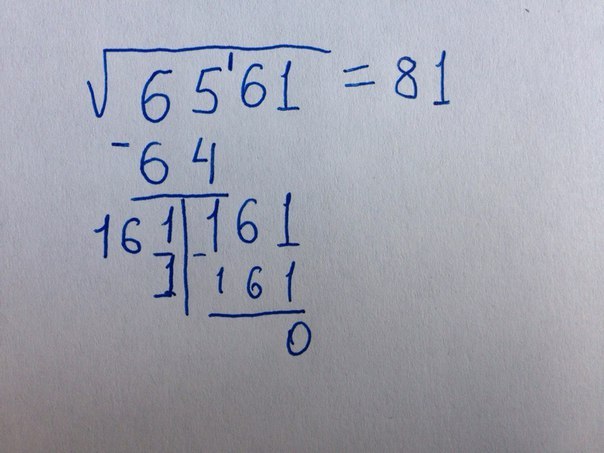 √65'61 = 81
-64
161 | -161
1 | 161
0